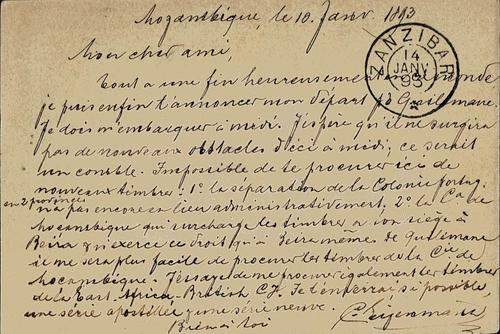 Mozambique, le 10 Janv. 1893
Mon cher ami,
ZANZIBAR
14
JANV
93
Tout a une fin heureusement monde
je puis enfin t'annoncer mon départ pr Quilimane.
Je dois m'embarquer à midi. J'espère qu'il ne surgira
pas de nouveaux obstacles d'ici à midi, ce serait
un comble. Impossible de te procurer ici de
nouveaux timbres: 1º la séparation de la Colonie portug.
en 2 provinces
n'a pas encore eu lieu administrativement, 2º la Cie de
Mozambique qui surcharge les timbres a son siège à
Beira & n'exerce ce droit qu'à Beira même. De Quilimane
il me sera plus facile de procurer les timbres de la Cie de
Mozambique. J'essaye de me procurer également les timbres
de la East Africa British Cy. Je t'enverrai si possible,
une série apostillée & une série neuve.
Bien à toi